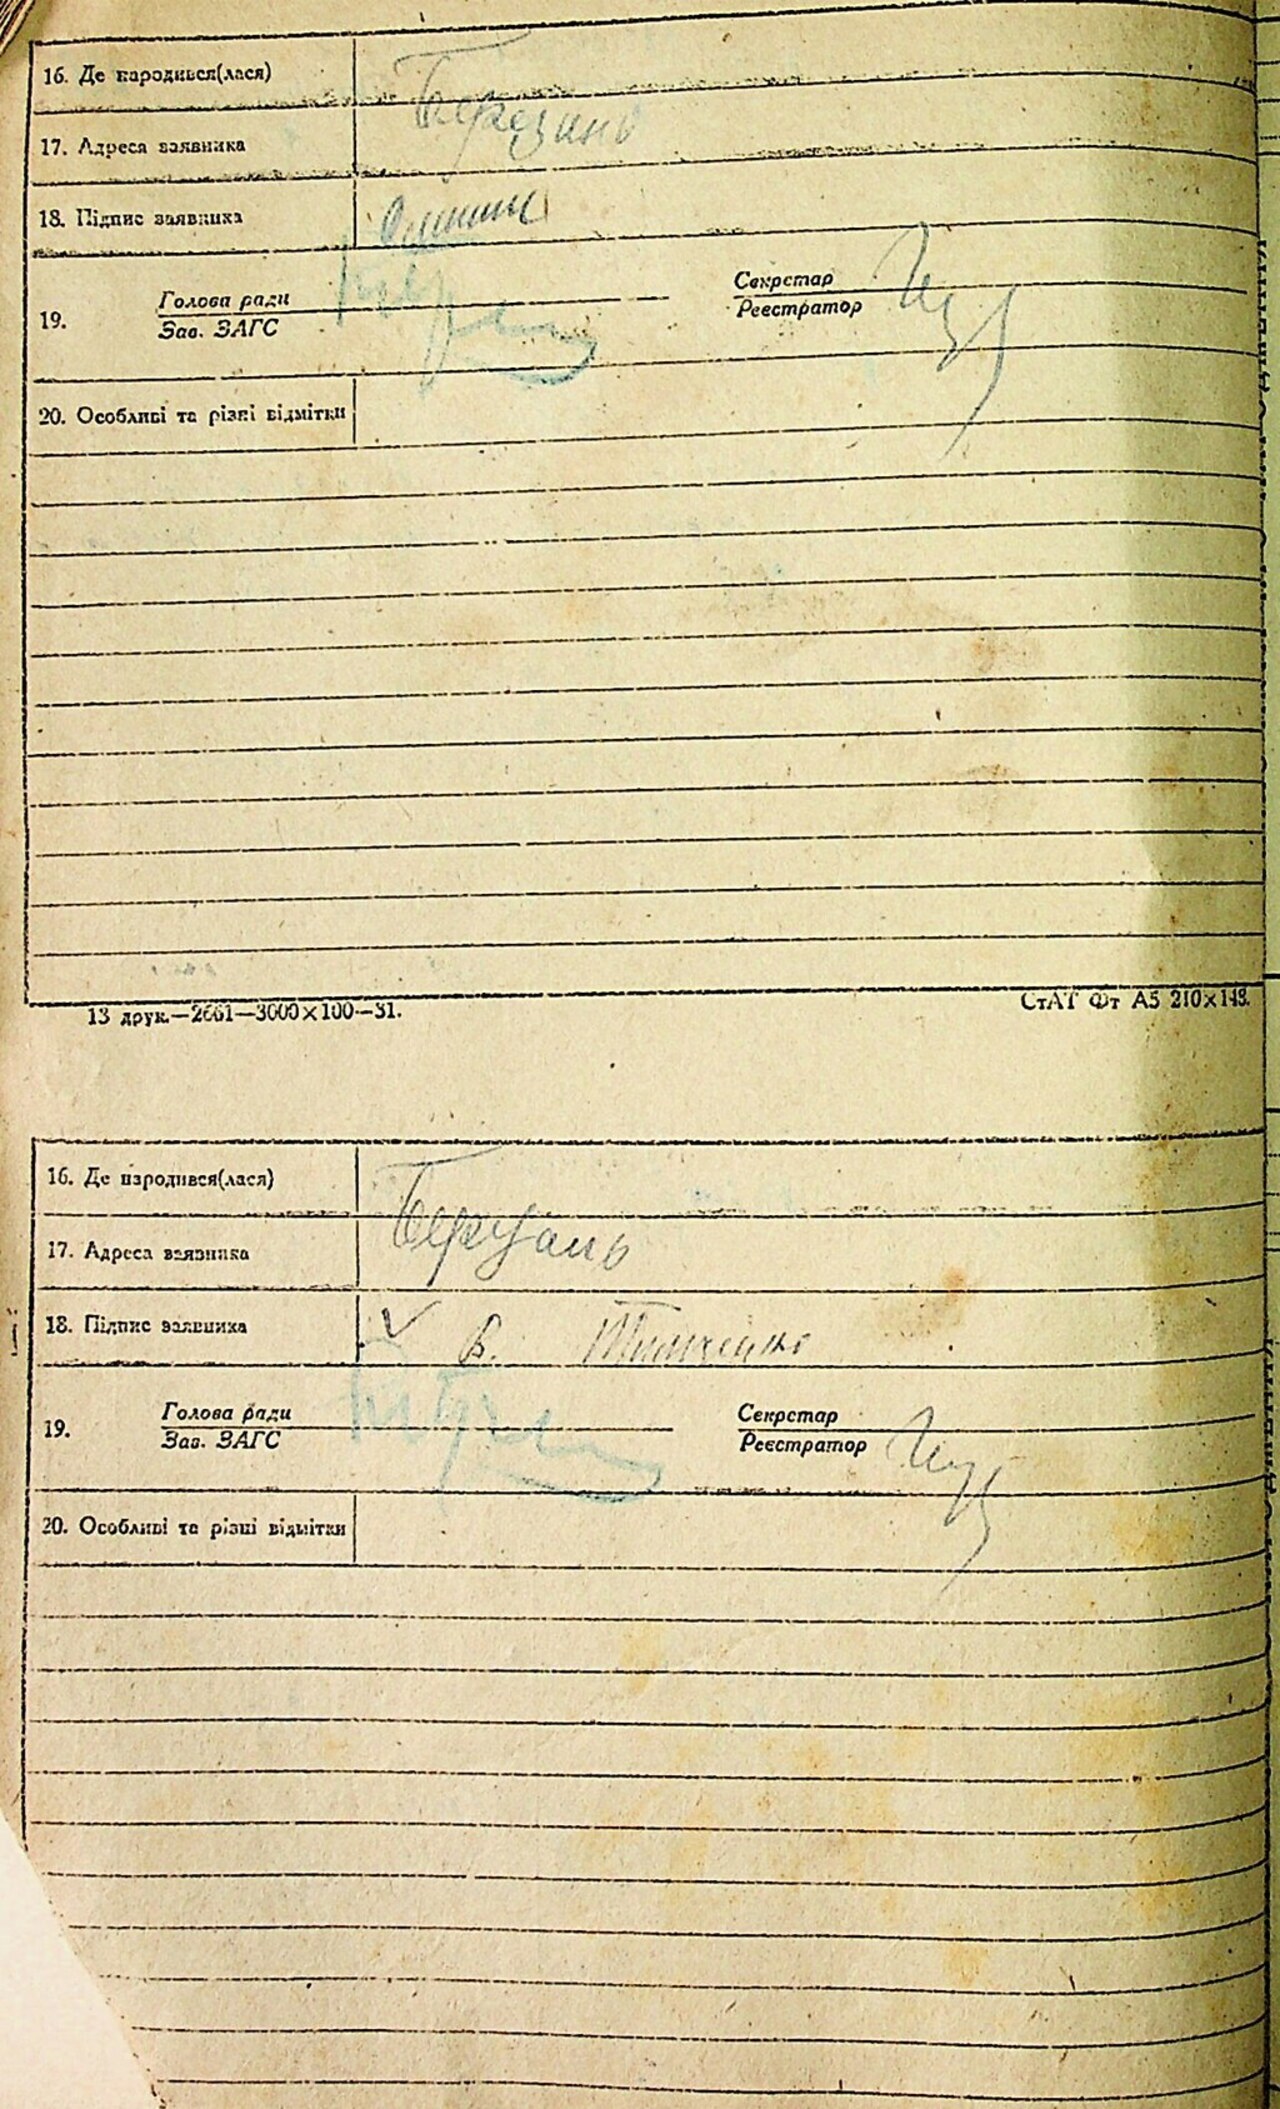 16. Де народився(лася)
Березань
17. Адреса заявника
18. Підпис заявника
19. Голова ради
Зав. ЗАГС
Секретар
Реєстратор
20. Особливі та різні відмітки
13 друк.—2661—3000×100—31.
СтАТ Фт А5 210×148.
16. Де народився(лася)
Березань
17. Адреса заявника
18. Підпис заявника В. Тимченко
19. Голова ради
Зав. ЗАГС
Секретар
Реєстратор
20. Особливі та різні відмітки